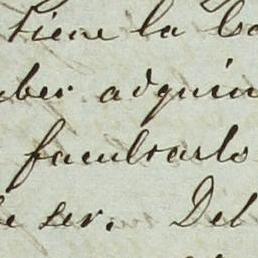 tiene la
ber adquiri
facultarlo
de ser. Del